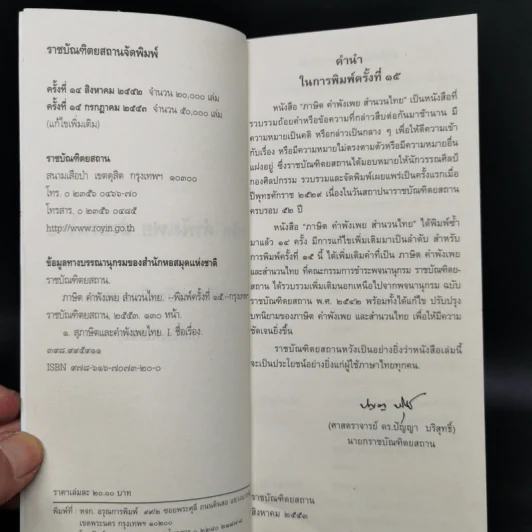 ราชบัณฑิตยสถานจัดพิมพ์
ครั้งที่ ๑๔ สิงหาคม ๒๕๕๒ จำนวน ๒๐,๐๐๐ เล่ม
ครั้งที่ ๑๕ กรกฎาคม ๒๕๕๓ จำนวน ๕๐,๐๐๐ เล่ม
(แก้ไขเพิ่มเติม)
ราชบัณฑิตยสถาน
สนามเสือป่า เขตดุสิต กรุงเทพฯ ๑๐๓๐๐
โทร. ๐ ๒๓๕๖ ๐๔๖๖-๗๐
โทรสาร. ๐ ๒๓๕๖ ๐๔๘๕
http://www.royin.go.th
ข้อมูลทางบรรณานุกรมของสำนักหอสมุดแห่งชาติ
ราชบัณฑิตยสถาน.
ภาษิต คำพังเพย สำนวนไทย.--พิมพ์ครั้งที่ ๑๕.--กรุงเทพฯ
ราชบัณฑิตยสถาน, ๒๕๕๓. ๑๓๐ หน้า.
๑. สุภาษิตและคำพังเพยไทย. I. ชื่อเรื่อง.
๓๙๘.๙๙๕๙๑๑
ISBN ๙๗๘-๖๑๖-๗๐๗๓-๒๐-๐
ราคาเล่มละ ๒๐.๐๐ บาท
พิมพ์ที่ : หจก. อรุณการพิมพ์ ๙๙/๒ ซอยพระศุลี ถนนดินสอ
เขตพระนคร กรุงเทพฯ ๑๐๒๐๐
คำนำ
ในการพิมพ์ครั้งที่ ๑๕
หนังสือ "ภาษิต คำพังเพย สำนวนไทย" เป็นหนังสือที่
รวบรวมถ้อยคำหรือข้อความที่กล่าวสืบต่อกันมาช้านาน มี
ความหมายเป็นคติ หรือกล่าวเป็นกลาง ๆ เพื่อให้ตีความเข้า
กับเรื่อง หรือมีความหมายไม่ตรงตามตัวหรือมีความหมายอื่น
แฝงอยู่ ซึ่งราชบัณฑิตยสถานได้มอบหมายให้นักวรรณศิลป์
กองศิลปกรรม รวบรวมและจัดพิมพ์เผยแพร่เป็นครั้งแรกเมื่อ
ปีพุทธศักราช ๒๕๒๙ เนื่องในวันสถาปนาราชบัณฑิตยสถาน
ครบรอบ ๕๒ ปี
หนังสือ "ภาษิต คำพังเพย สำนวนไทย" ได้พิมพ์ซ้ำ
มาแล้ว ๑๔ ครั้ง มีการแก้ไขเพิ่มเติมมาเป็นลำดับ สำหรับ
การพิมพ์ครั้งที่ ๑๕ นี้ ได้เพิ่มเติมคำที่เป็น ภาษิต คำพังเพย
และสำนวนไทย ที่คณะกรรมการชำระพจนานุกรม ราชบัณฑิต-
สถาน ได้รวบรวมเพิ่มเติมนอกเหนือไปจากพจนานุกรม ฉบับ
ราชบัณฑิตยสถาน พ.ศ. ๒๕๔๒ พร้อมทั้งได้แก้ไข ปรับปรุง
บทนิยามของภาษิต คำพังเพย และสำนวนไทย เพื่อให้มีความ
ชัดเจนยิ่งขึ้น
ราชบัณฑิตยสถานหวังเป็นอย่างยิ่งว่าหนังสือเล่มนี้
จะเป็นประโยชน์อย่างยิ่งแก่ผู้ใช้ภาษาไทยทุกคน.
(ศาสตราจารย์ ดร.ปัญญา บริสุทธิ์)
นายกราชบัณฑิตยสถาน
ราชบัณฑิตยสถาน
สิงหาคม ๒๕๕๓